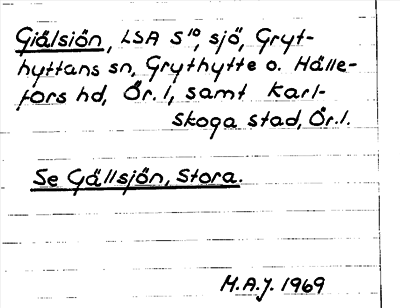 Giälsiön, LSA S¹⁰, sjö, Gryt-
hyttans sn, Grythytte o. Hälle-
fors hd, Ör. l, samt Karl-
skoga stad, Ör. l.
Se Gällsjön, Stora.
M.A.J. 1969